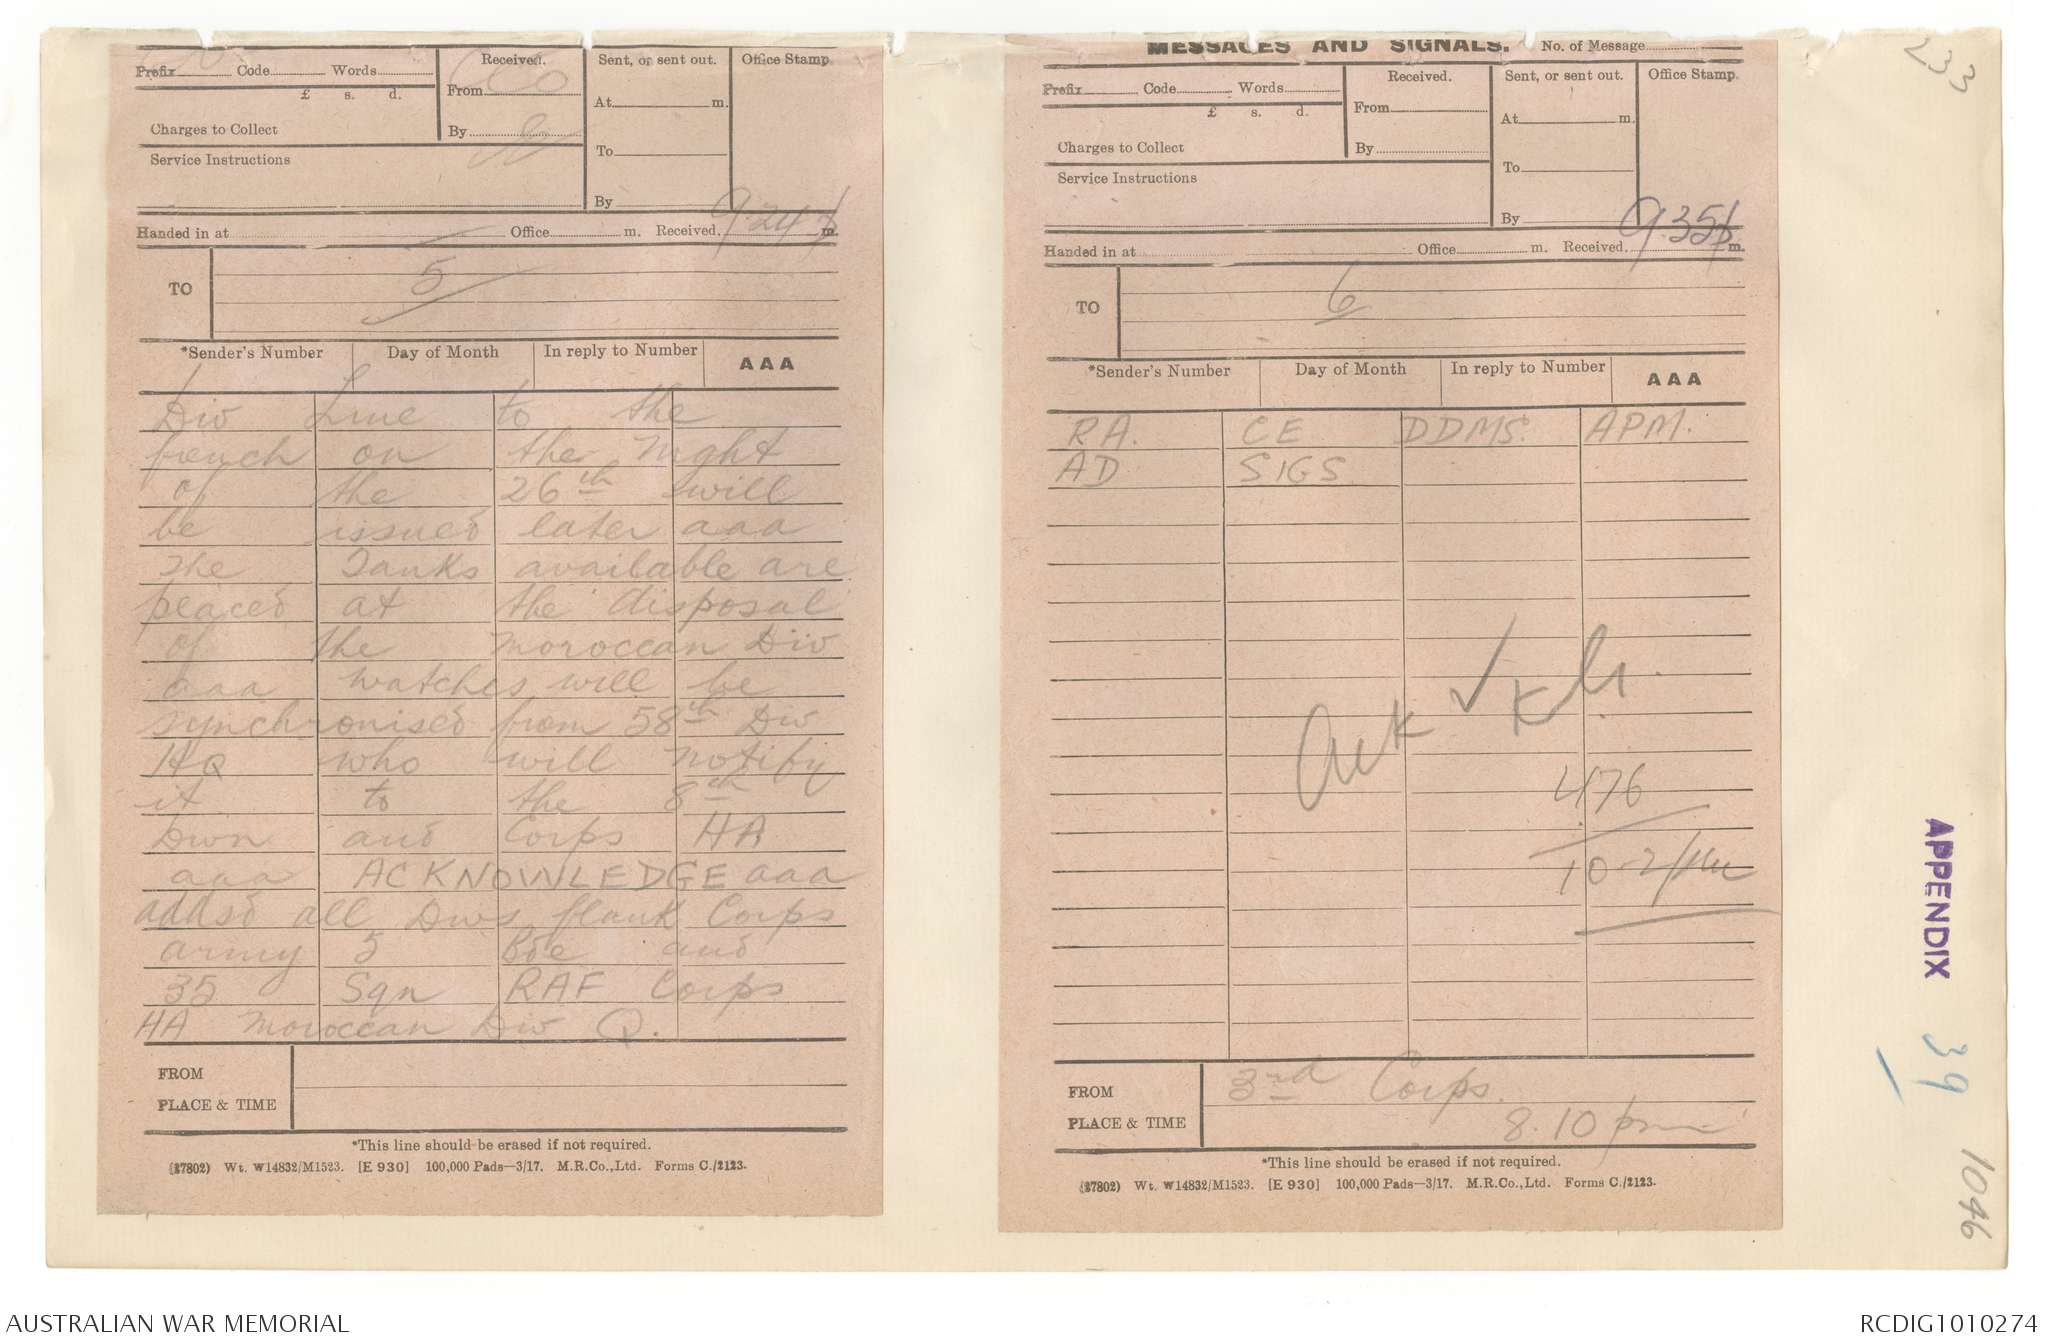 Prefix Code Words
£ s. d.
Charges to Collect
Service Instructions
Received.
From
By
Sent, or sent out.
At m.
To
By
Office Stamp.
Handed in at Office m. Received 9.24 p m.
TO 5
*Sender's Number Day of Month In reply to Number AAA
Div Line to the
french on ther night
of the 26th will
be issued later aaa
The Tanks available are
placed at the disposal
of the Moroccan Div
aaa watches will be
synchronised from 58th Div
HQ who will notify
it to the 8th
Divn and Corps HA
aaa ACKNOWLEDGE aaa
addsd all Divs flank Corps
army 5 Bde and
35 Sqn RAF Corps
HA Moroccan Div Q.
FROM
PLACE & TIME
*This line should be erased if not required.
(27802) Wt. W14832/M1523. [E 930] 100,000 Pads—3/17. M.R.Co.,Ltd. Forms C./2123.
MESSAGES AND SIGNALS. No. of Message
Prefix Code Words
£ s. d.
Charges to Collect
Service Instructions
Received.
From
By
Sent, or sent out.
At m.
To
By
Office Stamp.
Handed in at Office m. Received 9.35p m.
TO 6
*Sender's Number Day of Month In reply to Number AAA
RA. CE DDMS. APM.
AD SIGS
Ack
476
FROM 3rd Corps.
PLACE & TIME 8.10 pm
*This line should be erased if not required.
(27802) Wt. W14832/M1523. [E 930] 100,000 Pads—3/17. M.R.Co.,Ltd. Forms C./2123.
233
APPENDIX 39
1046
AUSTRALIAN WAR MEMORIAL
RCDIG1010274